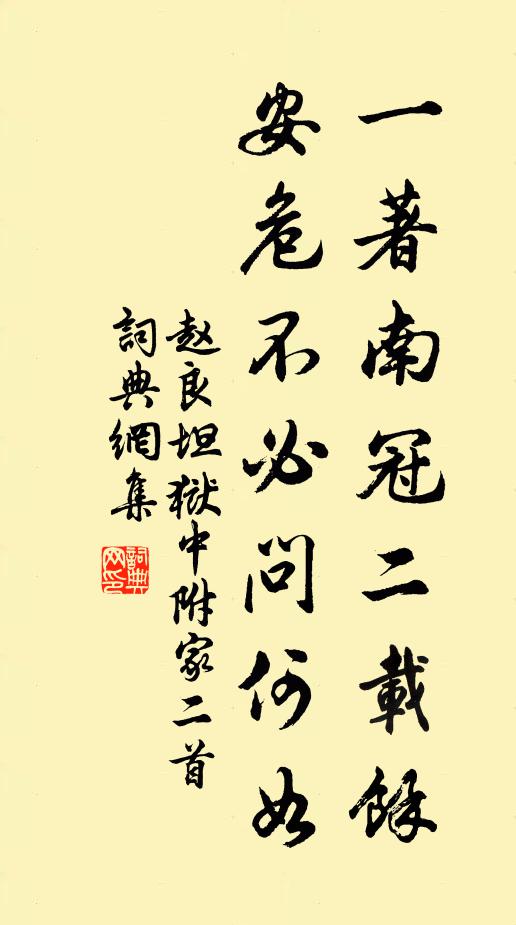 一著南冠二載餘
安危不必問何如
赵良坦獄中附家二首
詞典網集
詞典网印